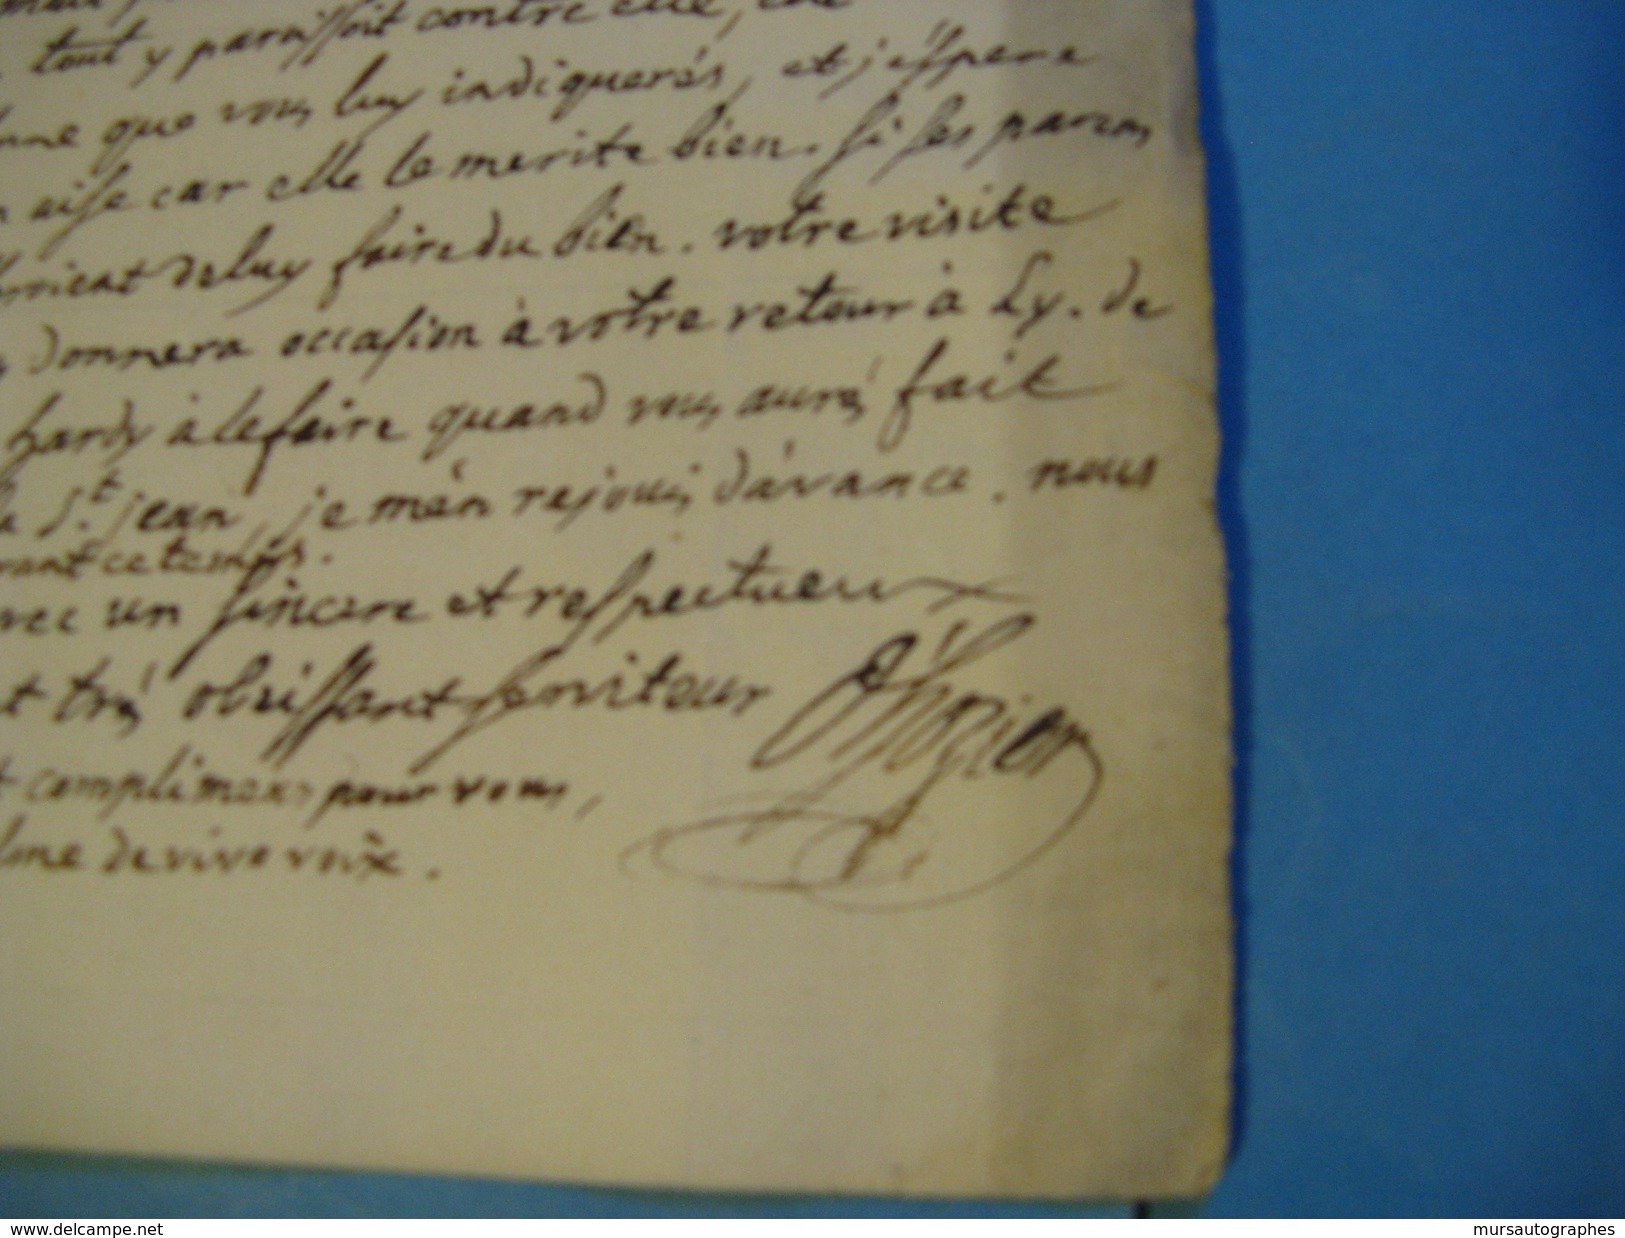 tout y paroissoit contre elle, elle
que vous luy indiquerés, et j'espere
aise car elle le merite bien. si ses parens
de luy faire du bien. votre visite
donnera occasion à votre retour à Ly. de
hardy à le faire quand vous aurés fait
la St. jean, je m'en rejouis d'avance. nous
ce temps.
avec un sincere et respectueux
et très obeissant serviteur D'hozier
complimens pour vous,
de vive voix.
www.delcampe.net
mursautographes